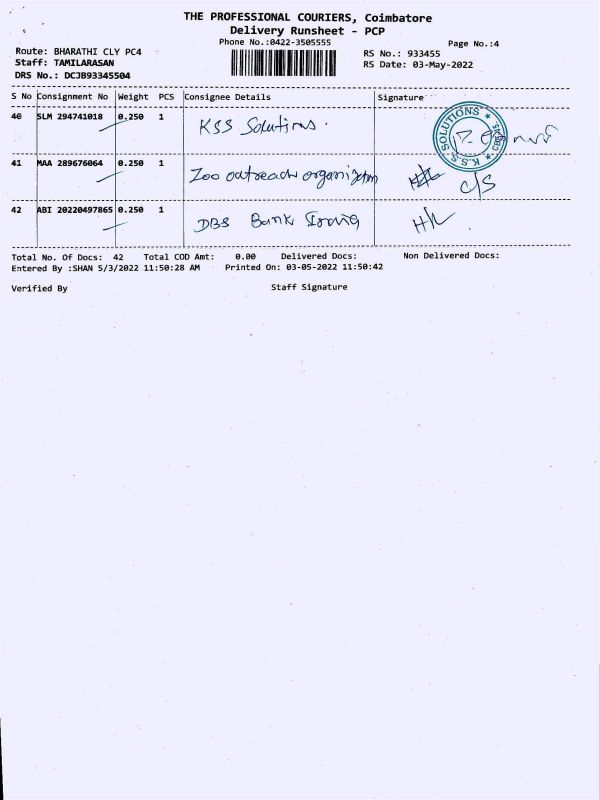 THE PROFESSIONAL COURIERS, Coimbatore
Delivery Runsheet - PCP
Phone No.:0422-3505555
Page No.:4
Route: BHARATHI CLY PC4
RS No.: 933455
Staff: TAMILARASAN
RS Date: 03-May-2022
DRS No.: DCJB93345504
S No Consignment No Weight PCS Consignee Details Signature
40 SLM 294741018 0.250 1 KSS Solutions.
SOLUTIONS * CBE-45. * K.S.S.
41 MAA 289676064 0.250 1 Zoo outreach organization
C/S
42 ABI 20220497865 0.250 1 DBS Bank
Total No. Of Docs: 42 Total COD Amt: 0.00 Delivered Docs: Non Delivered Docs:
Entered By :SHAN 5/3/2022 11:50:28 AM Printed On: 03-05-2022 11:50:42
Verified By Staff Signature